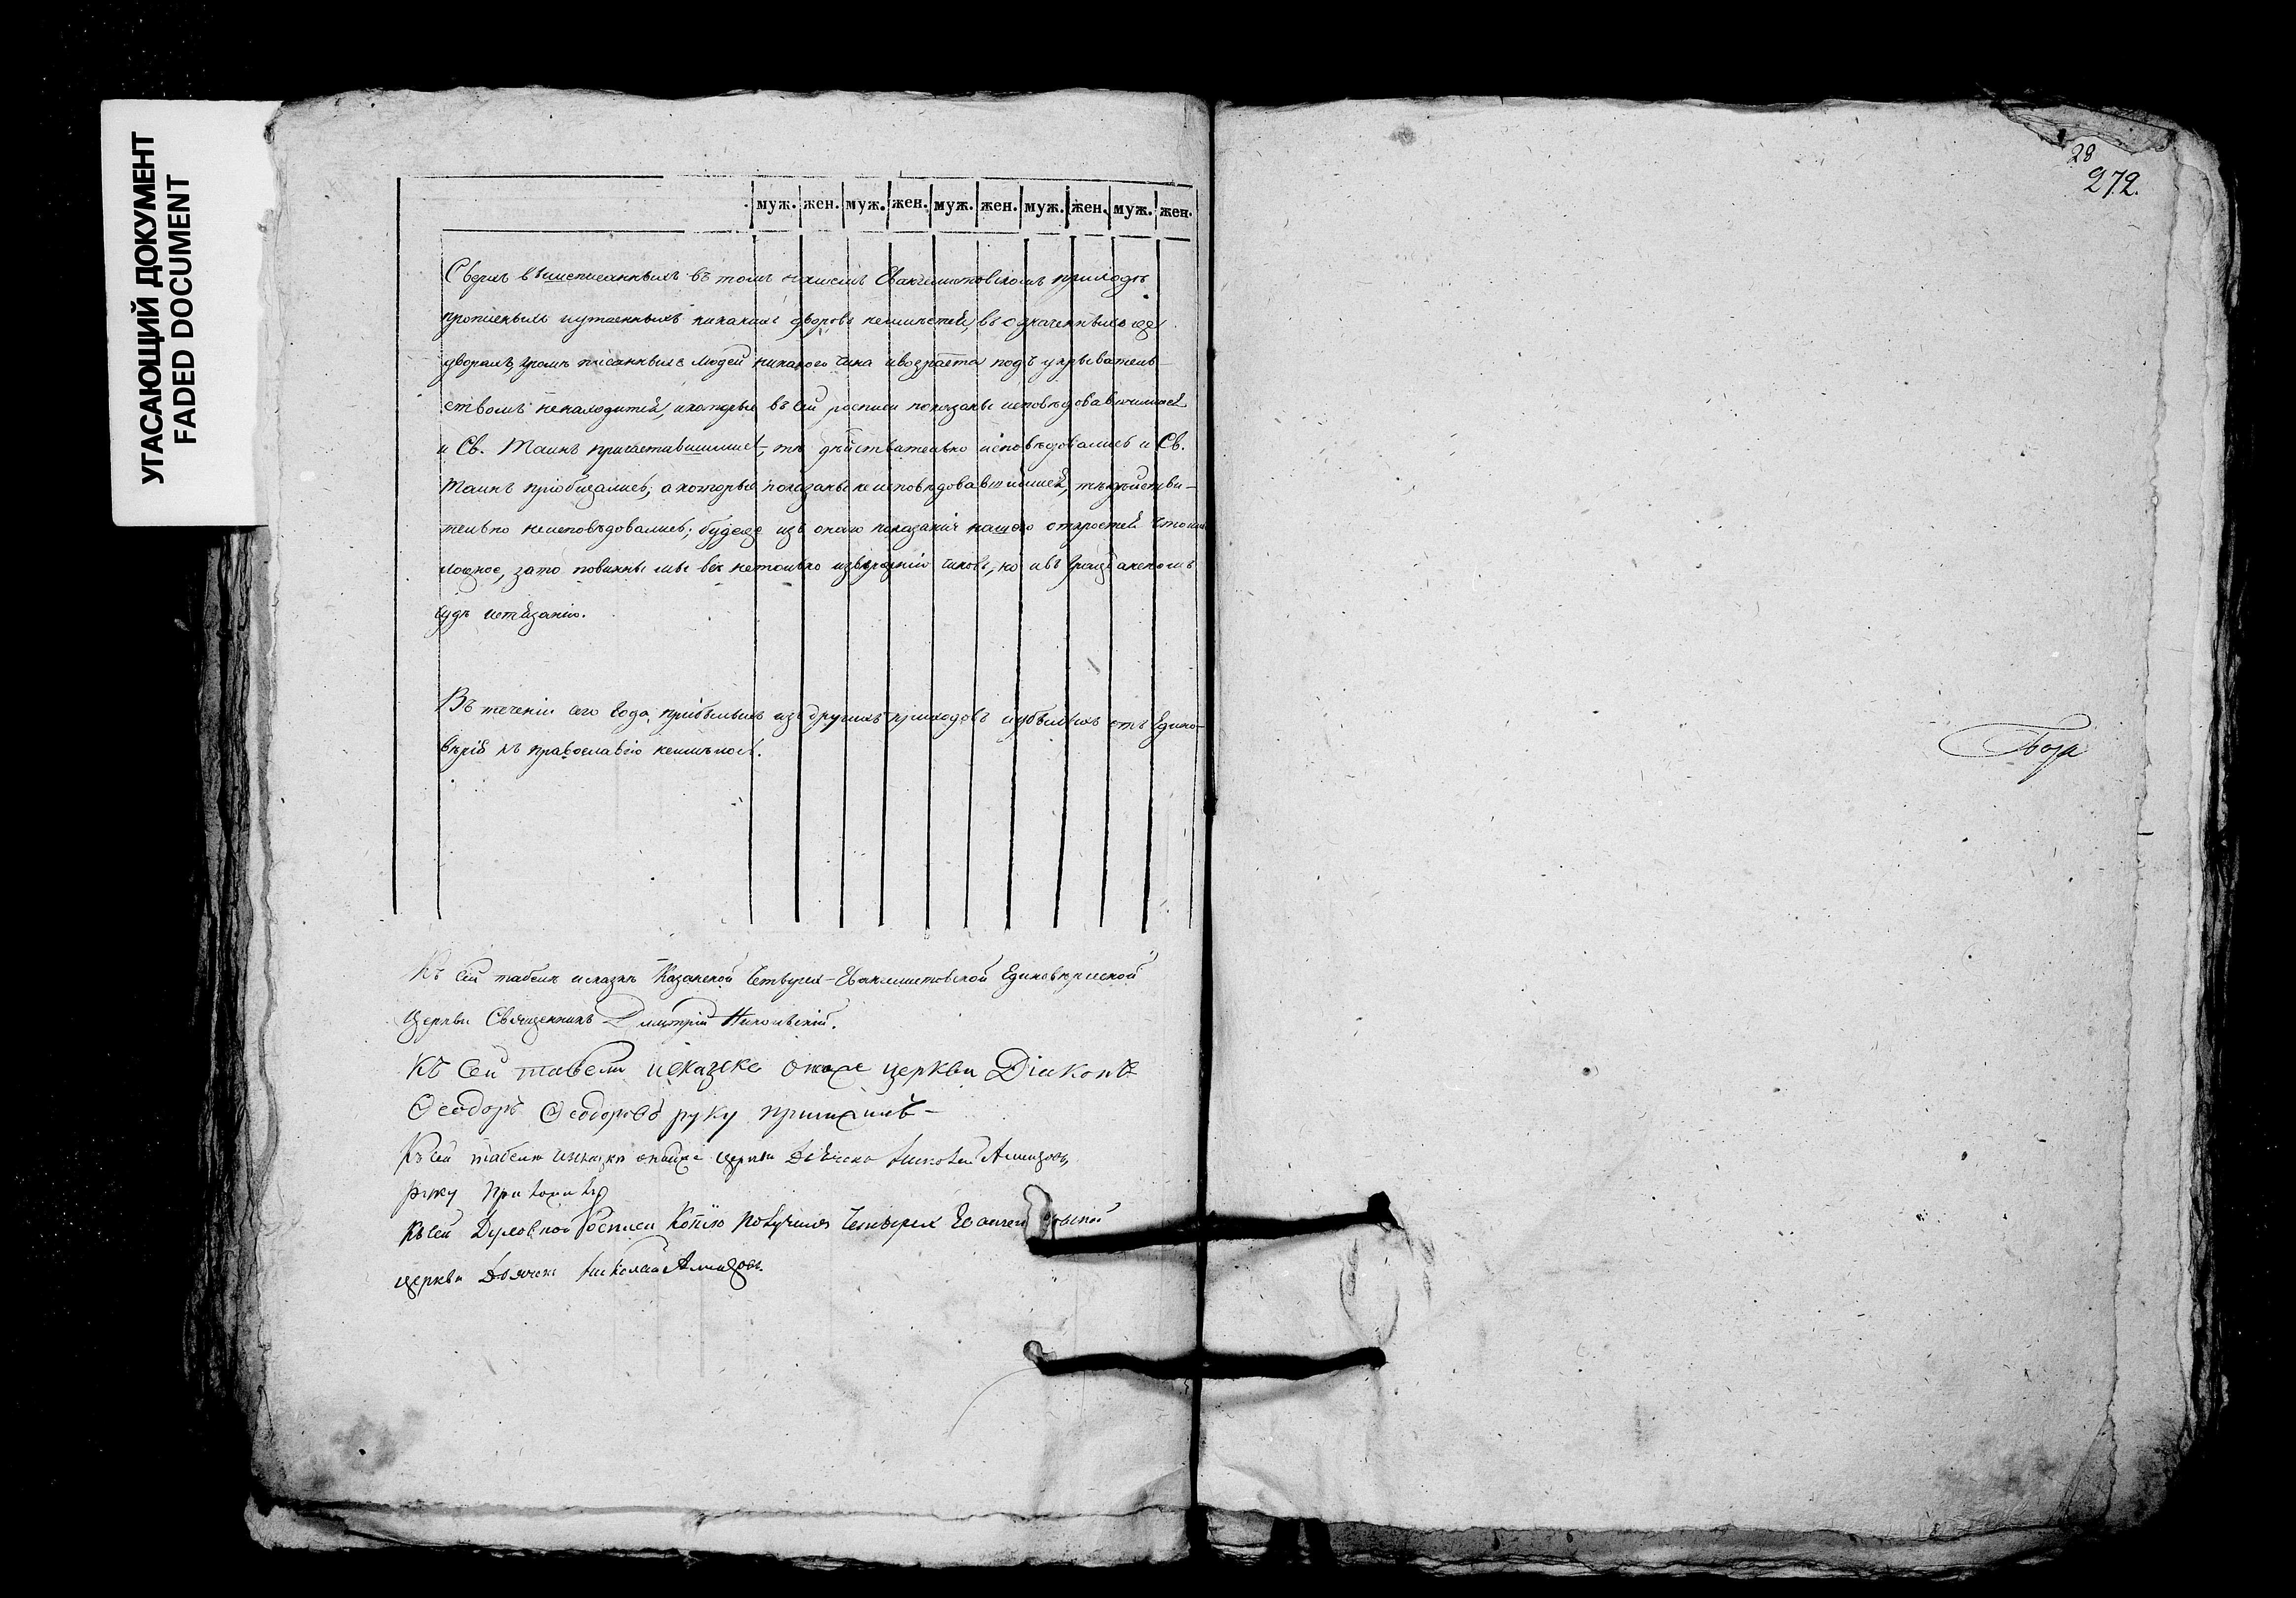 УГАСАЮЩИЙ ДОКУМЕНТ
FADED DOCUMENT
муж. жен. муж. жен. муж. жен. муж. жен. муж. жен.
Сверхъ вышеписанныхъ въ томъ нашемъ Евангелистовскомъ приходѣ
прописныхъ и утаенныхъ никакихъ дворовъ неимѣется, въ означенныхъ же
дворахъ, кромѣ писанныхъ людей никакого чина и возраста подъ укрыватель-
ствомъ ненаходится, и которые въ сей росписи показаны исповѣдовавшимися
и Св. Таинъ причастившимися, тѣ дѣйствительно исповѣдовались и Св.
Таинъ пріобщались; а которые показаны неисповѣдовавшимися, тѣ дѣйстви-
тельно неисповѣдовались; будеже изъ онаго показанія нашего откроется что
ложное, за то повинны мы всѣ нетолько изверженію чиновъ, но и въ гражданскомъ
судѣ истязанію.
Въ теченіи сего года, прибылыхъ изъ другихъ приходовъ и убылыхъ отъ Едино-
вѣрія къ православію неимѣлось.
Къ сей табели и сказкѣ Казанской Четырех-Евангелистовской Единовѣрческой
Церкви Священникъ Димитрій Никольскій.
Къ сей табели и сказке оной же церкви Діаконъ
Ѳеодоръ Ѳеодоровъ руку приложилъ-
Къ сей табели и сказки онойже церкви Дьячекъ Николай
руку приложилъ
Къ сей Духовной росписи Копію получилъ Четырех Евангелистовской
церкви Дьячекъ Николай
28
272.